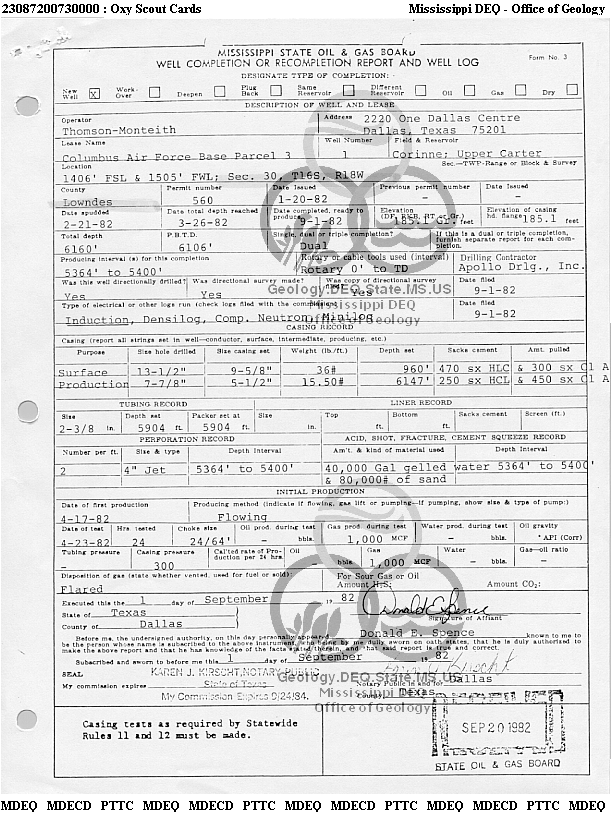 23087200730000 : Oxy Scout Cards Mississippi DEQ - Office of Geology
MISSISSIPPI STATE OIL & GAS BOARD
WELL COMPLETION OR RECOMPLETION REPORT AND WELL LOG Form No. 3
DESIGNATE TYPE OF COMPLETION:
New Well X Work-Over Deepen Plug Back Same Reservoir Different Reservoir Oil Gas Dry
DESCRIPTION OF WELL AND LEASE
Operator Address 2220 One Dallas Centre
Thomson-Monteith Dallas, Texas 75201
Lease Name Well Number Field & Reservoir
Columbus Air Force Base Parcel 3 1 Corinne; Upper Carter
Location Sec.—TWP-Range or Block & Survey
1406' FSL & 1505' FWL; Sec. 30, T16S, R18W
County Permit number Date Issued Previous permit number Date Issued
Lowndes 560 1-20-82 - -
Date spudded Date total depth reached Date completed, ready to produce Elevation (DF, RKB, RT or Gr.) Elevation of casing hd. flange
2-21-82 3-26-82 9-1-82 185.1 Gr. feet 185.1 feet
Total depth P.B.T.D. Single, dual or triple completion? If this is a dual or triple completion, furnish separate report for each completion.
6160' 6106' Dual
Producing interval (s) for this completion Rotary or cable tools used (interval) Drilling Contractor
5364' to 5400' Rotary 0' to TD Apollo Drlg., Inc.
Was this well directionally drilled? Was directional survey made? Was copy of directional survey filed? Date filed
Yes Yes Yes 9-1-82
Geology.DEQ.State.MS.US
Mississippi DEQ
Office of Geology
Type of electrical or other logs run (check logs filed with the commission) Date filed
Induction, Densilog, Comp. Neutron, Minilog 9-1-82
CASING RECORD
Casing (report all strings set in well—conductor, surface, intermediate, producing, etc.)
Purpose Size hole drilled Size casing set Weight (lb./ft.) Depth set Sacks cement Amt. pulled
Surface 13-1/2" 9-5/8" 36# 960' 470 sx HLC & 300 sx Cl A
Production 7-7/8" 5-1/2" 15.50# 6147' 250 sx HCL & 450 sx Cl A
TUBING RECORD LINER RECORD
Size Depth set Packer set at Size Top Bottom Sacks cement Screen (ft.)
2-3/8 in. 5904 ft. 5904 ft. in. ft. ft.
PERFORATION RECORD ACID, SHOT, FRACTURE, CEMENT SQUEEZE RECORD
Number per ft. Size & type Depth Interval Am't. & kind of material used Depth Interval
2 4" Jet 5364' to 5400' 40,000 Gal gelled water 5364' to 5400'
& 80,000# of sand
INITIAL PRODUCTION
Date of first production Producing method (indicate if flowing, gas lift or pumping—if pumping, show size & type of pump:)
4-17-82 Flowing
Date of test Hrs tested Choke size Oil prod. during test Gas prod. during test Water prod. during test Oil gravity
4-23-82 24 24/64' - bbls. 1,000 MCF - bbls. ° API (Corr)
Tubing pressure Casing pressure Cal'ted rate of Production per 24 hrs. Oil Gas Water Gas—oil ratio
- 300 - bbls. 1,000 MCF - bbls.
Disposition of gas (state whether vented, used for fuel or sold): For Sour Gas or Oil
Flared Amount H2S: Amount CO2:
Executed this the 1 day of September 19 82 Donald E. Spence
State of Texas Signature of Affiant
County of Dallas
Before me, the undersigned authority, on this day personally appeared Donald E. Spence known to me to
be the person whose name is subscribed to the above instrument, who being by me duly sworn on oath states, that he is duly authorized to
make the above report and that he has knowledge of the facts stated therein, and that said report is true and correct.
Subscribed and sworn to before me this 1 day of September 19 82
SEAL KAREN J. KIRSCHT, NOTARY PUBLIC Notary Public in and for Dallas
My commission expires State of Texas County, Texas
My Commission Expires 9/24/84.
Geology.DEQ.State.MS.US
Mississippi DEQ
Office of Geology
Casing tests as required by Statewide
Rules 11 and 12 must be made.
SEP 20 1982
STATE OIL & GAS BOARD
MDEQ MDECD PTTC MDEQ MDECD PTTC MDEQ MDECD PTTC MDEQ MDECD PTTC MDEQ